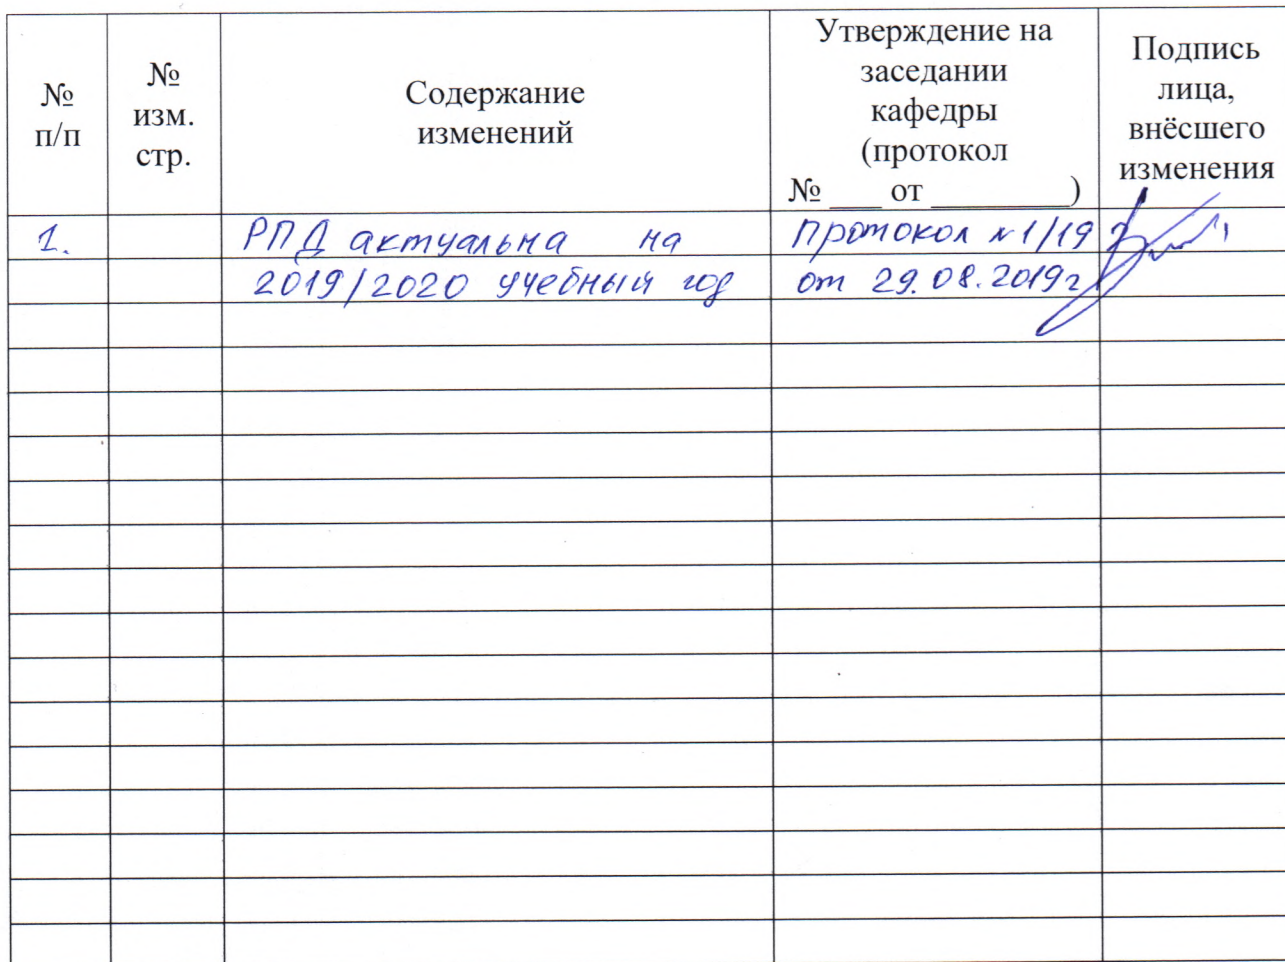 №
п/п
№
изм.
стр.
Содержание
изменений
Утверждение на
заседании
кафедры
(протокол
№ ___ от ________)
Подпись
лица,
внёсшего
изменения
1.
РПД актуальна на
2019/2020 учебный год
Протокол №1/19
от 29.08.2019г